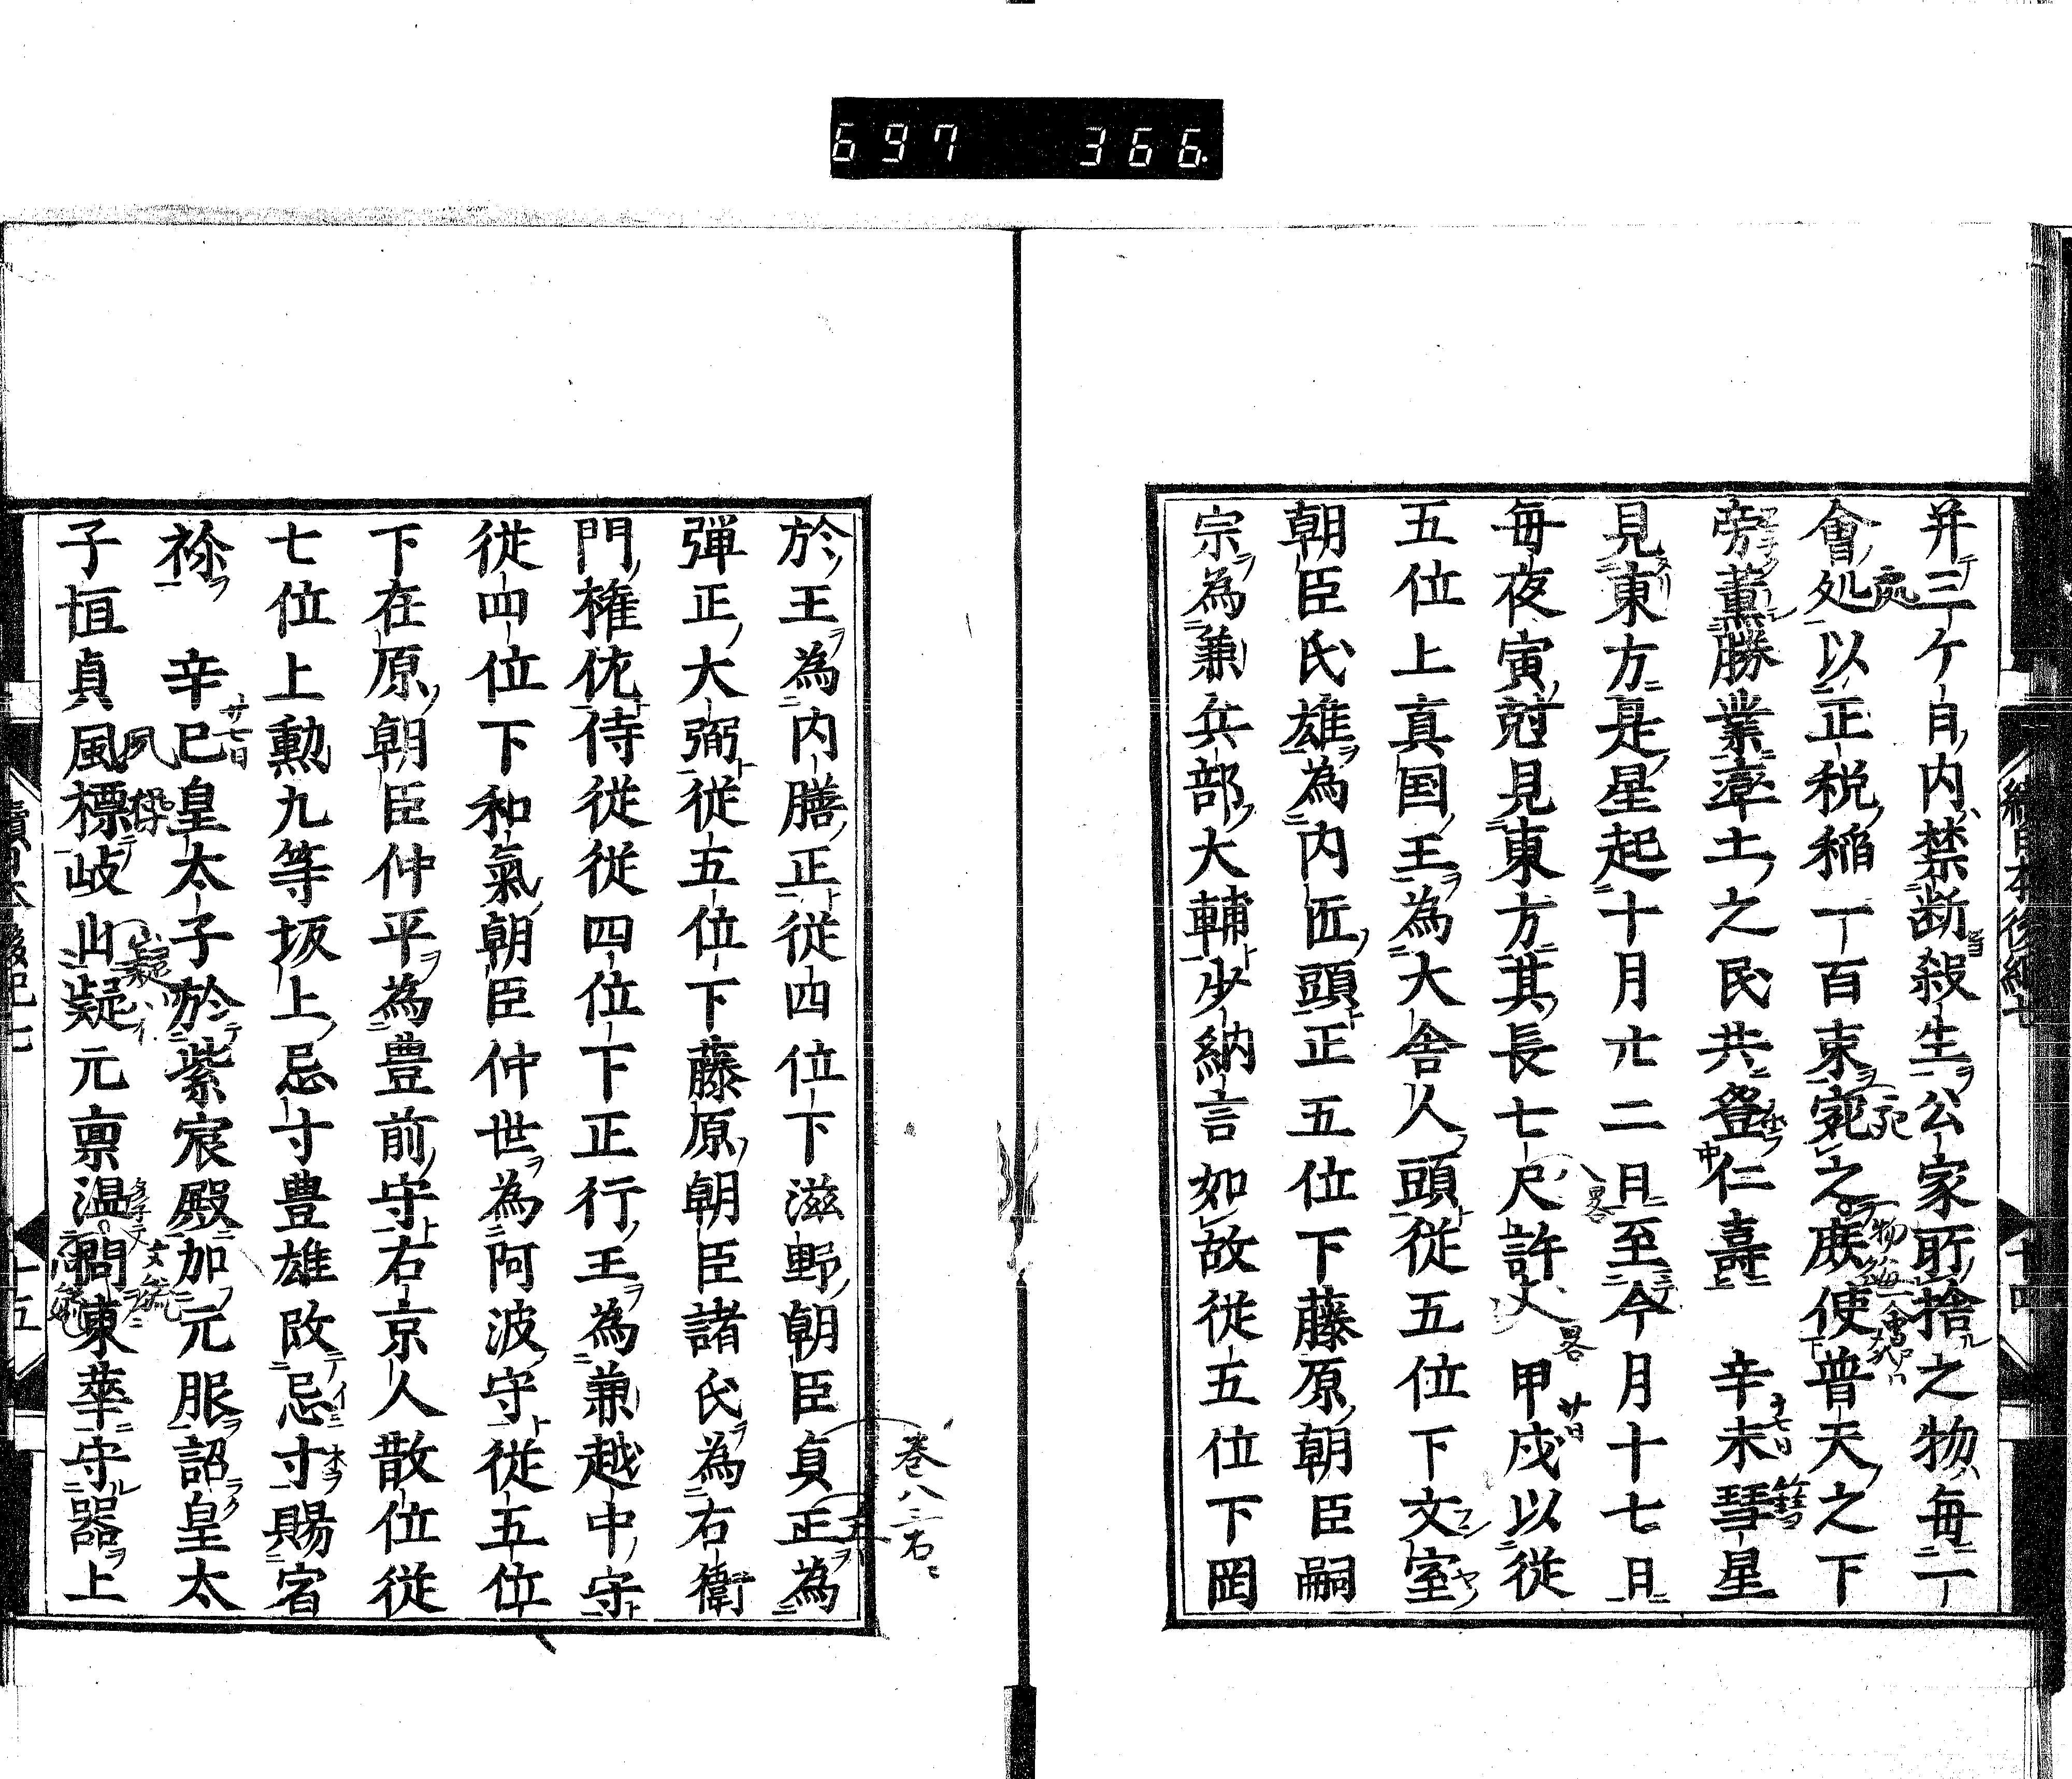 697 366.
并三ケ月内禁断殺生公家所捨之物毎一
會処以正税稲一百束宛之庶使普天之下
旁薫勝業率土之民共登仁壽　辛未彗星
見東方是星起十月廿二日至今月十七日
毎夜寅尅見東方其長七尺許丈　甲戌以従
五位上真国王為大舎人頭従五位下文室
朝臣氏雄為内匠頭正五位下藤原朝臣嗣
宗為兼兵部大輔少納言如故従五位下岡
於王為内膳正従四位下滋野朝臣貞正為
弾正大弼従五位下藤原朝臣諸氏為右衛
門権佐侍従従四位下正行王為兼越中守
従四位下和氣朝臣仲世為阿波守従五位
下在原朝臣仲平為豊前守右京人散位従
七位上勲九等坂上忌寸豊雄改忌寸賜宿
祢　辛巳皇太子於紫宸殿加元服詔皇太
子恒貞風標岐山疑元禀温問東華守器上
巻八三右